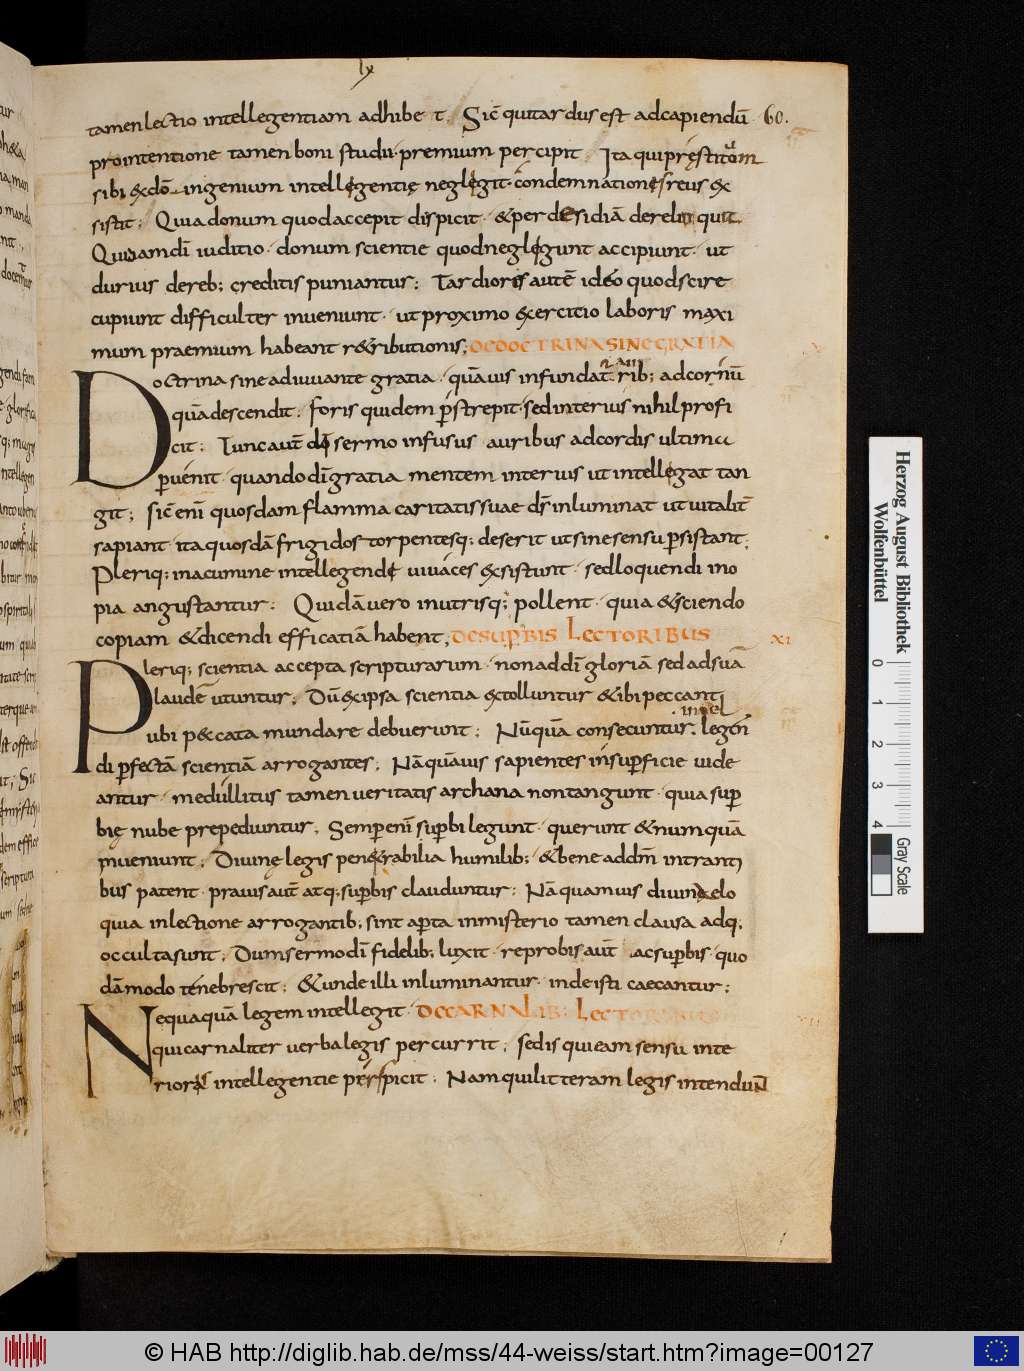 lx
tamen lectio intellegentiam adhibe t. Sic̄ qui tardus est ad capiendū 60.
pro intentione tamen boni studii · premium percipit Ita qui pręstitom
sibi & dō ingenium intellegentię neglegit · condemnationis reus ex
sistit; Quia donum quod accepit dispicit · & per desidiā derelinquit
Quidam dī iuditio · donum scientie quod neglegunt accipiunt · ut
durius de reb; creditis puniantur; Tardiores autē ideo quod scire
cupiunt difficulter inveniunt · ut proximo exercitio laboris maxi
mum praemium habeant r&ributionis; DE DOCTRINA SINE GRATIA
Doctrina sine adiuvante gratia · quāvis infundat aurib; ad cor nū
quā descendit; foris quidem p̄strepit · sed interius nihil profi
cit; Tunc aut̄ dī sermo infusus auribus ad cordis ultima
pervenit · quando dī gratia mentem interius ut intellegat tan
git; Sic̄ enī quosdam flamma caritatis suae ds̄ inluminat ut vitalit̄
sapiant · ita quosdā frigidos torpentesq; deserit ut sine sensu psistant;
Pleriq; in acumine intellegende vivaces exsistunt · sed loquendi ino
pia angustantur; Quidā vero in utrisq; pollent · quia & sciendo
copiam & dicendi efficatiā habent; DE SUPBIS LECTORIBUS XI
Pleriq; scientia accepta scripturarum · non ad dī gloriā sed ad suā
laudē utuntur; Dū & ipsa scientia extolluntur & ibi peccant
ubi peccata mundare debuerunt; Nūquā consecuntur · legen
di pfectā scientiā arrogantes; Nā quāvis sapientes in supficie vide
antur · medullitus tamen veritatis archana non tangunt · quia sup
bię nube prepediuntur; Semp enī supbi legunt · querunt & numquā
inveniunt; Divinę legis pen&rabilia humilib; & bene ad dm̄ intranti
bus patent · pravis aut̄ atq; supbis clauduntur; Nā quamvis divina elo
quia in lectione arrogantib; sint apta in misterio tamen clausa adq;
occulta sunt; Dum sermo dī fidelib; luxit · reprobis aut̄ ac supbis · quo
dā modo tenebrescit; & unde illi inluminantur · inde isti caecantur;
Nequaquā legem intellegit · DE CARNALIB; LECTORIBUS XII
qui carnaliter verba legis percurrit; sed is qui eam sensu inte
rioris intellegentie perspicit; Nam qui litteram legis intendunt
Herzog August Bibliothek
Wolfenbüttel
0 1 2 3 4
Gray Scale
© HAB http://diglib.hab.de/mss/44-weiss/start.htm?image=00127